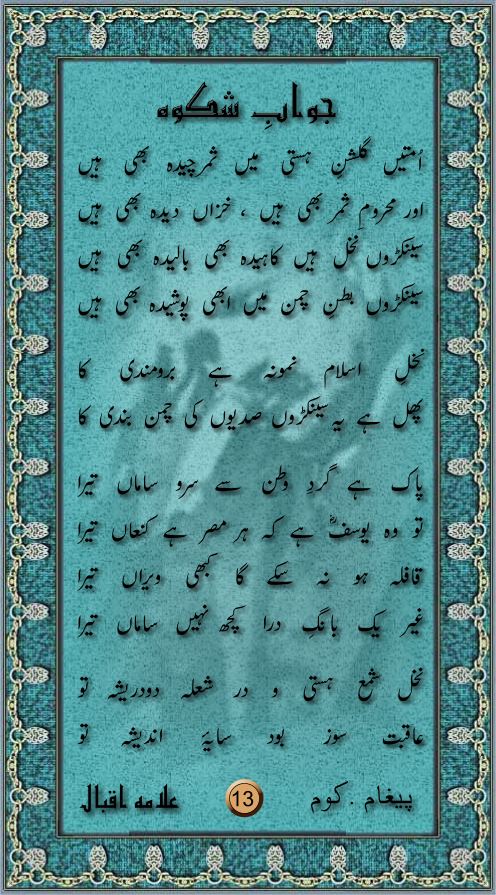 جوابِ شکوہ
اُمتیں گلشنِ ہستی میں ثمر چیدہ بھی ہیں
اور محرومِ ثمر بھی ہیں ، خزاں دیدہ بھی ہیں
سینکڑوں نخل ہیں کاہیدہ بھی بالیدہ بھی ہیں
سینکڑوں بطنِ چمن میں ابھی پوشیدہ بھی ہیں
نخلِ اسلام نمونہ ہے برومندی کا
پھل ہے یہ سینکڑوں صدیوں کی چمن بندی کا
پاک ہے گردِ وطن سے سرو ساماں تیرا
تو وہ یوسفؑ ہے کہ ہر مصر ہے کنعاں تیرا
قافلہ ہو نہ سکے گا کبھی ویراں تیرا
غیر یک بانگِ درا کچھ نہیں ساماں تیرا
نخل شمع ہستی و در شعلہ دودریشہ تو
عاقبت سوز بود سایۂ اندیشہ تو
پیغام .کوم 13 علامہ اقبال